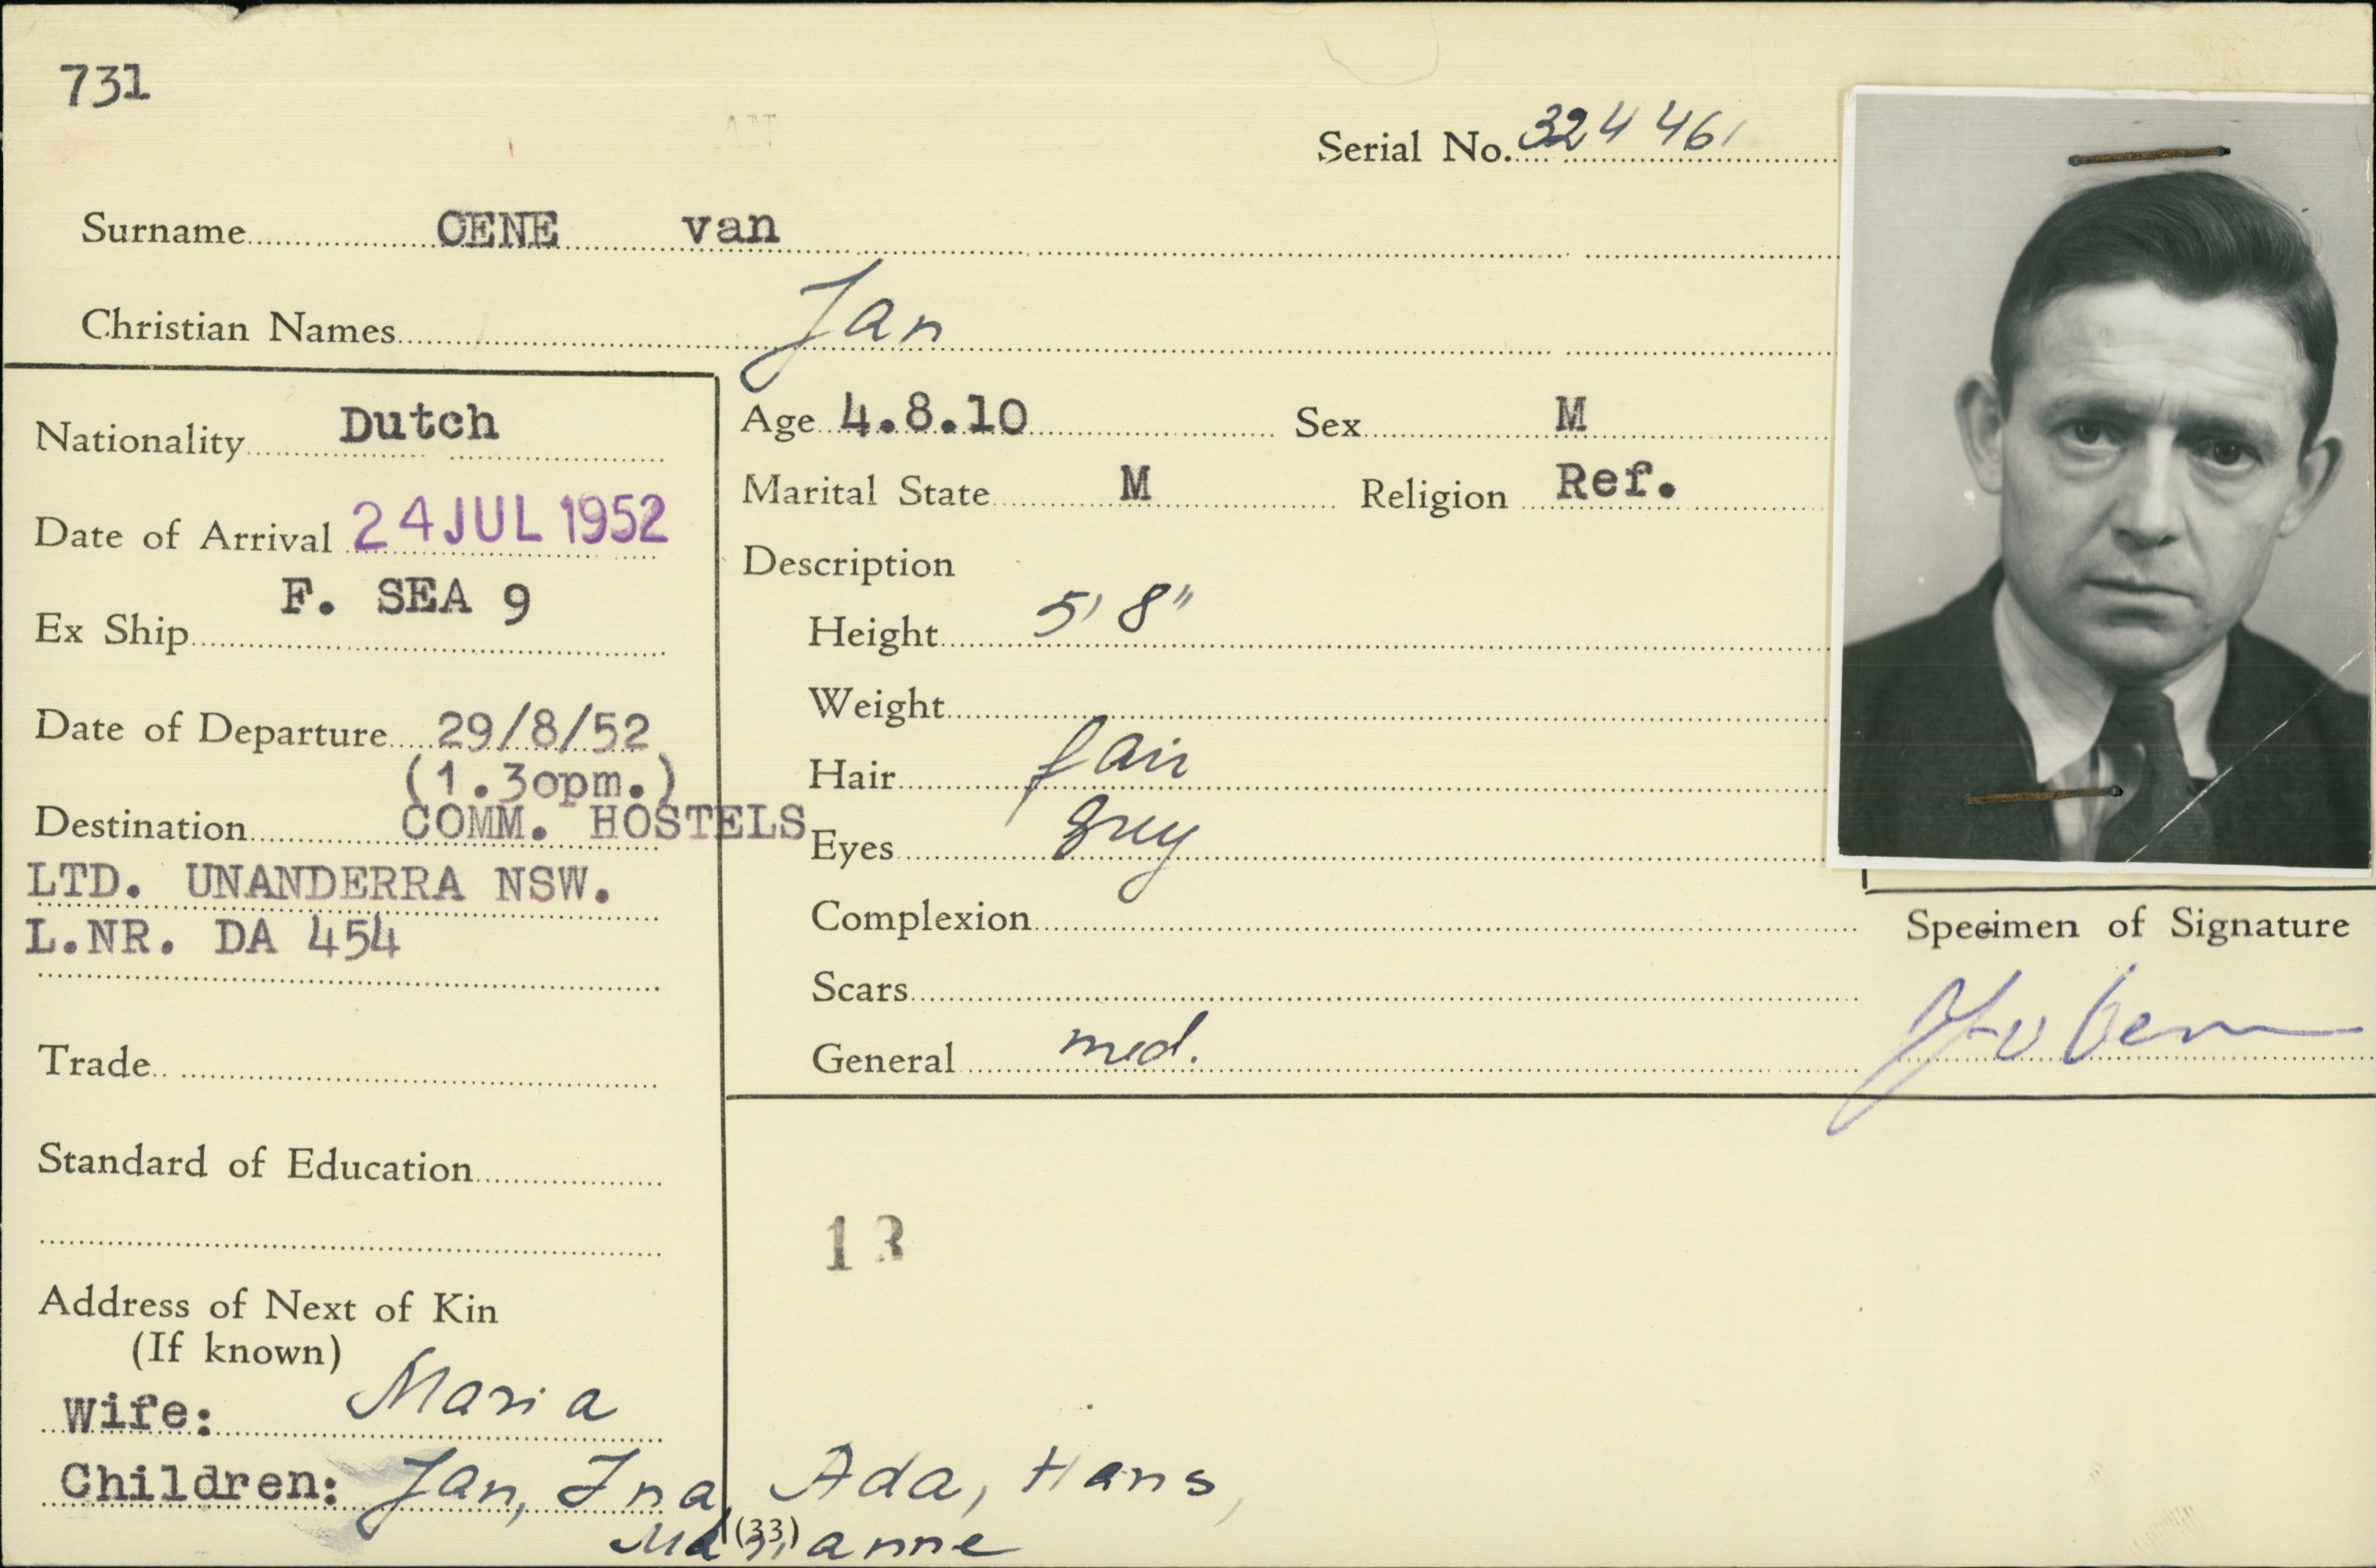 731
Serial No. 324461
Surname OENE van
Christian Names Jan
Nationality Dutch
Date of Arrival 24 JUL 1952
Ex Ship F. SEA 9
Date of Departure 29/8/52
(1.30pm.)
Destination COMM. HOSTELS
LTD. UNANDERRA NSW.
L.NR. DA 454
Trade
Standard of Education
Address of Next of Kin
(If known)
Wife: Maria
Children: Jan, Ina, Ada, Hans,
Marianne
(33)
Age 4.8.10 Sex M
Marital State M Religion Ref.
Description
Height 5' 8"
Weight
Hair fair
Eyes grey
Complexion
Scars
General med.
13
Specimen of Signature